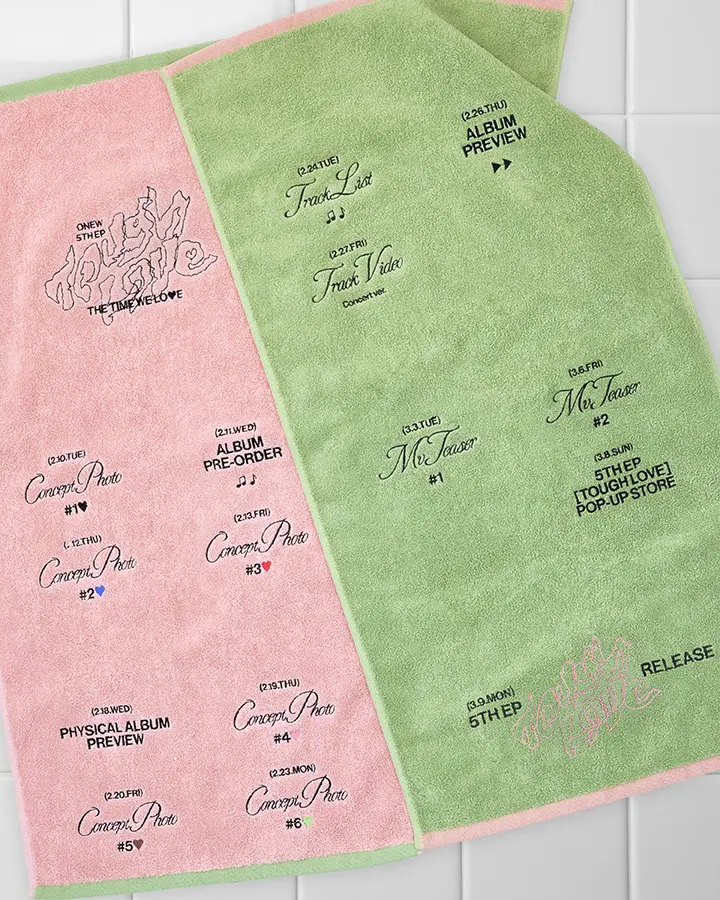 ONEW
5TH EP
TOUGH
LOVE
THE TIME WE LO♥E
(2.10.TUE)
Concept Photo
#1♥
(2.11.WED)
ALBUM
PRE-ORDER
♫ ♪
(2.12.THU)
Concept Photo
#2♥
(2.13.FRI)
Concept Photo
#3♥
(2.18.WED)
PHYSICAL ALBUM
PREVIEW
(2.19.THU)
Concept Photo
#4♥
(2.20.FRI)
Concept Photo
#5♥
(2.23.MON)
Concept Photo
#6♥
(2.24.TUE)
Track List
♫ ♪
(2.26.THU)
ALBUM
PREVIEW
▶▶
(2.27.FRI)
Track Video
Concert ver.
(3.3.TUE)
Mv Teaser
#1
(3.6.FRI)
Mv Teaser
#2
(3.8.SUN)
5TH EP
[TOUGH LOVE]
POP-UP STORE
(3.9.MON)
5TH EP
TOUGH
LOVE
RELEASE